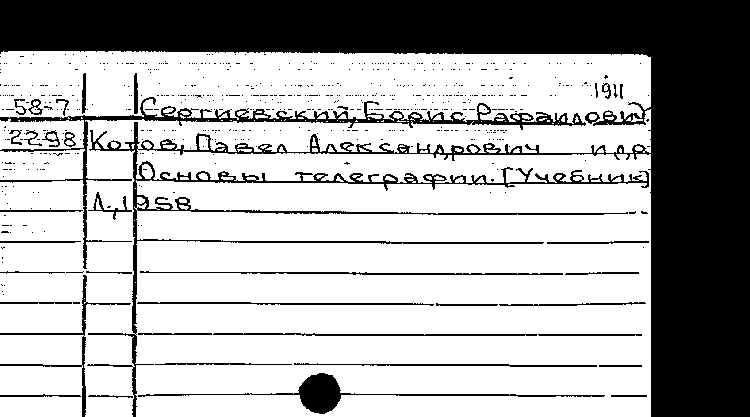 1911
58-7 Сергиевский, Борис Рафаилович
2298 Котов, Павел Александрович и др.
Основы телеграфии. [Учебник]
Л., 1958